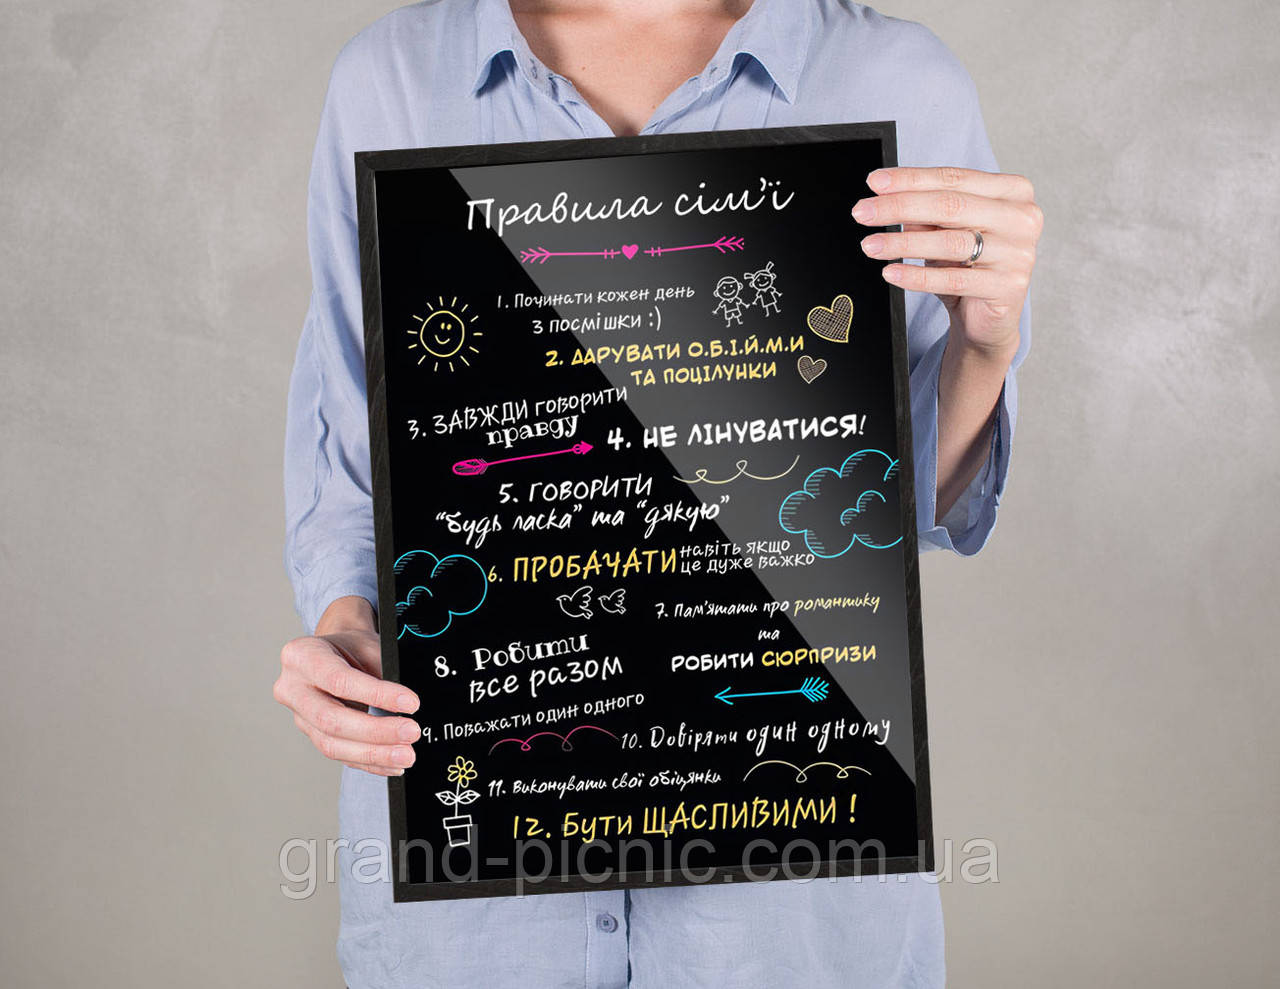 Правила сім'ї
1. Починати кожен день
з посмішки :)
2. ДАРУВАТИ О.Б.І.Й.М.И
ТА ПОЦІЛУНКИ
3. ЗАВЖДИ говорити
правду
4. НЕ ЛІНУВАТИСЯ!
5. ГОВОРИТИ
"будь ласка" та "дякую"
6. ПРОБАЧАТИ навіть якщо
це дуже важко
7. Пам'ятати про романтику
та
РОБИТИ СЮРПРИЗИ
8. Робити
все разом
9. Поважати один одного
10. Довіряти один одному
11. Виконувати свої обіцянки
12. Бути ЩАСЛИВИМИ !
grand-picnic.com.ua